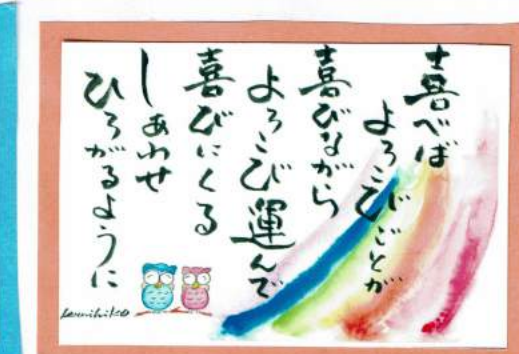 喜べば
よろこびごとが
喜びながら
よろこび運んで
喜びにくる
しあわせ
ひろがるように